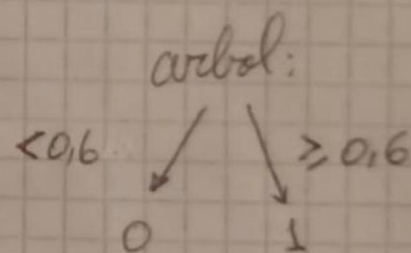 arbol:
<0,6 ≥ 0,6
0 1